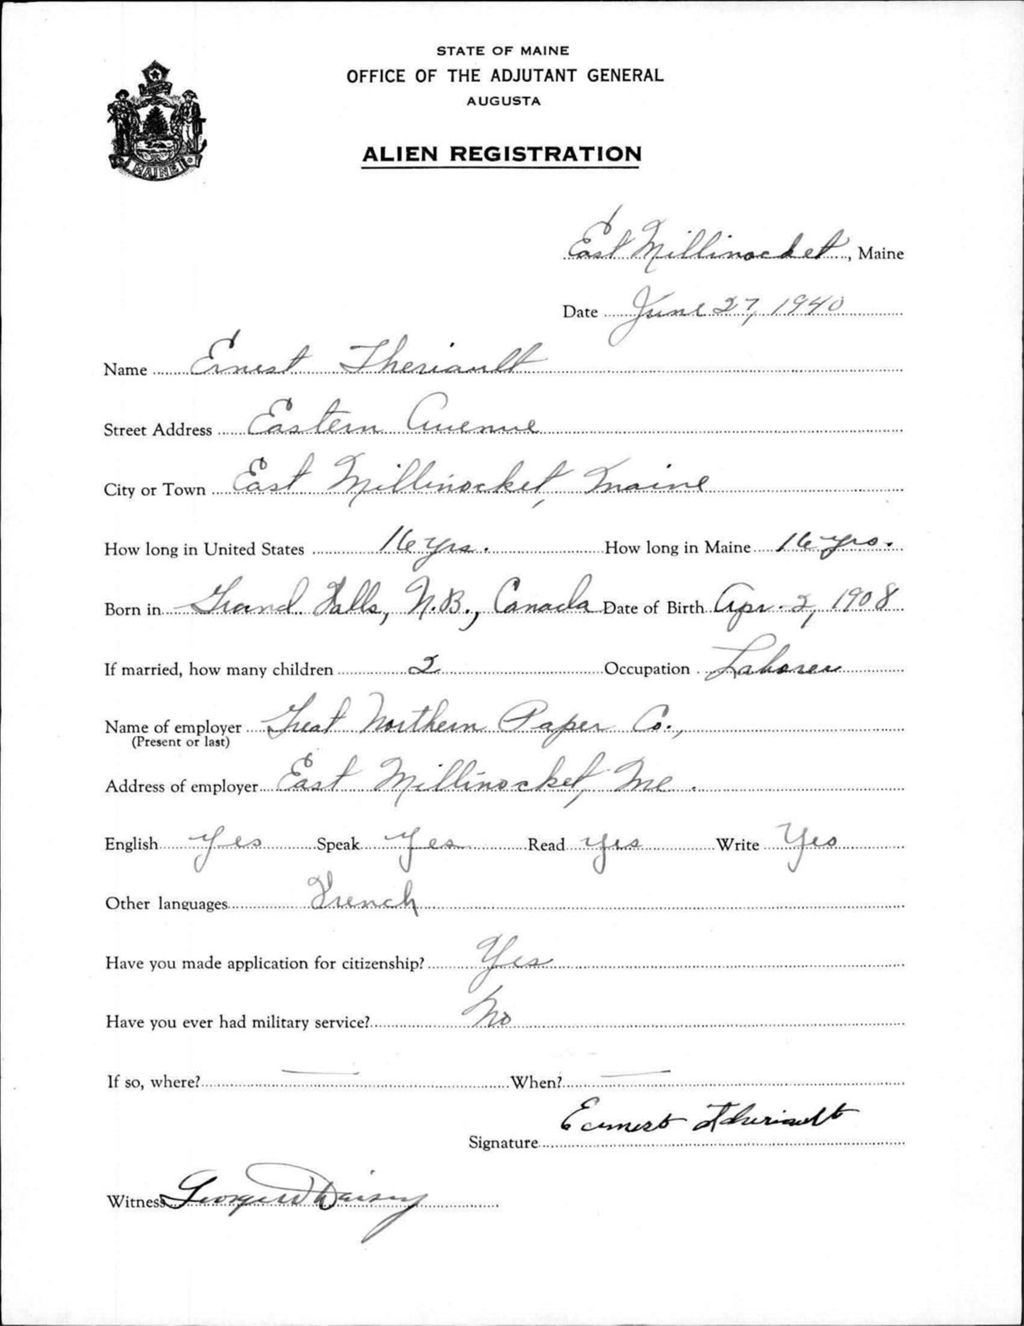 STATE OF MAINE
OFFICE OF THE ADJUTANT GENERAL
AUGUSTA
ALIEN REGISTRATION
MAINE
East Millinocket, Maine
Date June 27, 1940
Name Ernest Theriault
Street Address Eastern Avenue
City or Town East Millinocket, Maine
How long in United States 16 yrs. How long in Maine 16 yrs.
Born in Grand Falls, N.B., Canada Date of Birth Apr. 2, 1908
If married, how many children 2 Occupation Laborer
Name of employer Great Northern Paper Co.,
(Present or last)
Address of employer East Millinocket, Me.
English Yes Speak Yes Read Yes Write Yes
Other languages French
Have you made application for citizenship? Yes
Have you ever had military service? No
If so, where? — When? —
Earnest Theriault
Signature
Witness George W Daisey